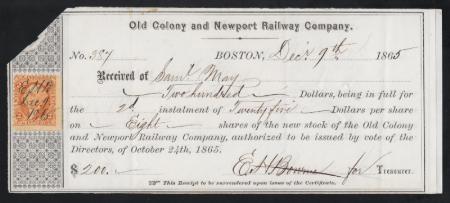 Old Colony and Newport Railway Company.
No. 337 BOSTON, Decr. 9th 1865
Received of Saml. May
Two hundred Dollars, being in full for
the 2d instalment of Twenty five Dollars per share
on Eight shares of the new stock of the Old Colony
and Newport Railway Company, authorized to be issued by vote of the
Directors, of October 24th, 1865.
$200. for Treasurer.
This Receipt to be surrendered upon issue of the Certificate.